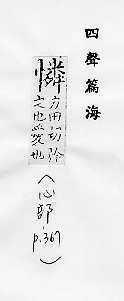 四聲篇海
憐
力田切矜
之也愛也
(心部 p.367)